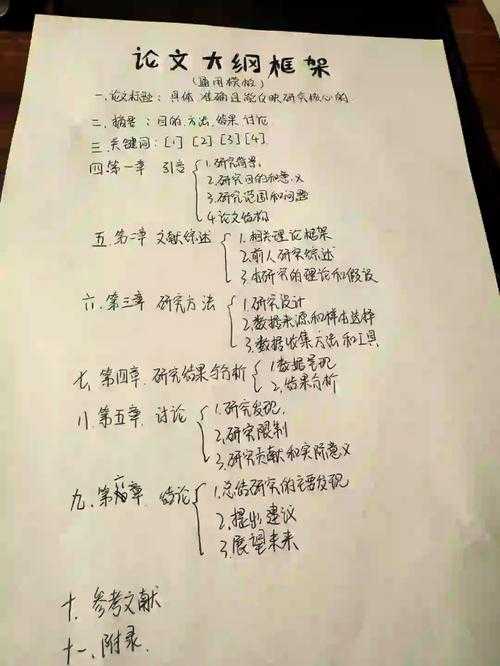 论文大纲框架
(通用模板)
一、论文标题：具体 准确且能反映研究核心的
二、摘要：目的 方法 结果 讨论
三、关键词：[1] [2] [3] [4]
四、第一章 引言
1.研究背景
2.研究目的和意义
3.研究范围和问题
4.论文结构
五、第二章 文献综述
1.相关理论框架
2.前人研究综述
3.本研究的理论和假设
六、第三章 研究方法
1.研究设计
2.数据来源和样本选择
3.数据收集方法和工具
七、第四章 研究结果与分析
1.数据呈现
2.结果分析
八、第五章 讨论
1.研究发现
2.研究限制
3.研究贡献和实际意义
九、第六章 结论
1.总结研究的主要发现
2.提出建议
3.展望未来
十、参考文献
十一、附录